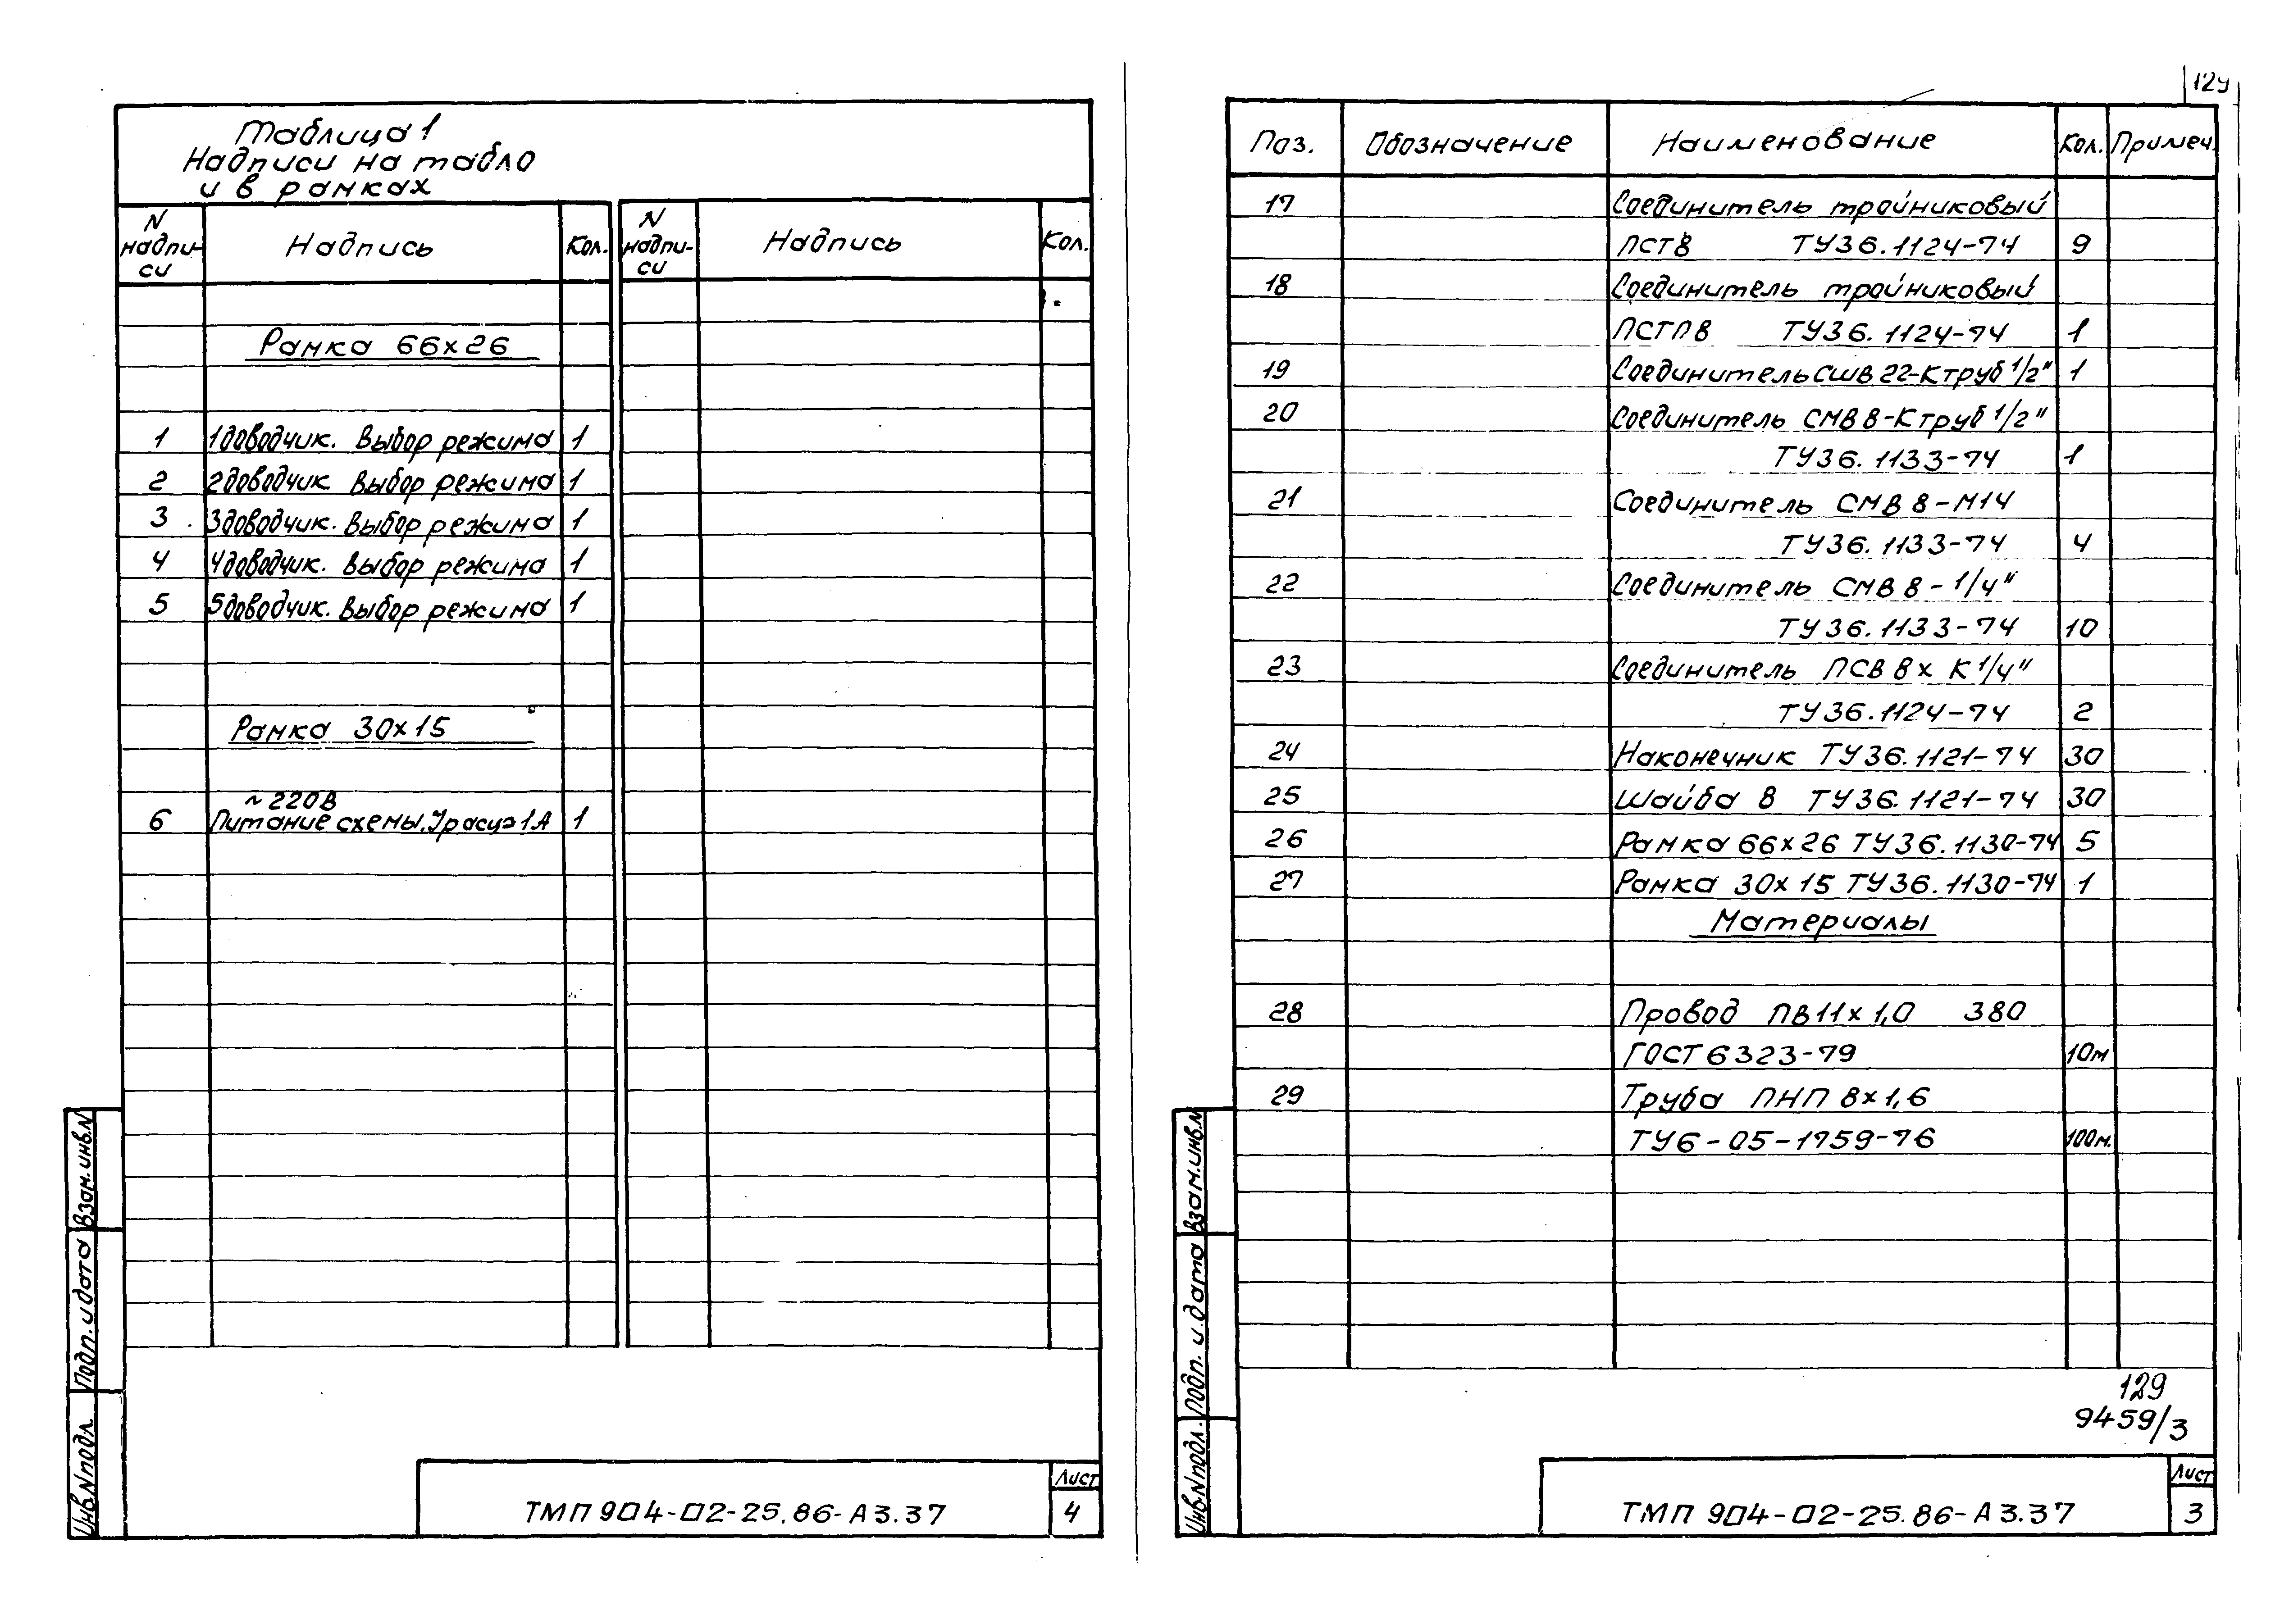 129
Таблица 1
Надписи на табло
и в рамках
N надпи-си Надпись Кол. N надпи-си Надпись Кол.
Рамка 66х26
1 1доводчик. Выбор режима 1
2 2доводчик Выбор режима 1
3 3доводчик. Выбор режима 1
4 4доводчик. Выбор режима 1
5 5доводчик. Выбор режима 1
Рамка 30х15
~220В
6 Питание схемы. 1А 1
Взам.инв.N
Подп. и дата
Инв.N подл.
ТМП 904-02-25.86-А3.37
Лист
4
Поз. Обозначение Наименование Кол. Примеч.
17 Соединитель тройниковый
ПСТ8 ТУ36.1124-74 9
18 Соединитель тройниковый
ПСТП8 ТУ36.1124-74 1
19 Соединитель СШВ 22-К труб 1/2" 1
20 Соединитель СМВ 8-К труб 1/2"
ТУ36.1133-74 1
21 Соединитель СМВ 8-М14
ТУ36.1133-74 4
22 Соединитель СМВ 8-1/4"
ТУ36.1133-74 10
23 Соединитель ПСВ 8х К 1/4"
ТУ36.1124-74 2
24 Наконечник ТУ36.1121-74 30
25 Шайба 8 ТУ36.1121-74 30
26 Рамка 66х26 ТУ36.1130-74 5
27 Рамка 30х15 ТУ36.1130-74 1
Материалы
28 Провод ПВ1 1х1,0 380
ГОСТ 6323-79 10м
29 Труба ПНП 8х1,6
ТУ6-05-1759-76 100м.
129
9459/3
Взам.инв.N
Подп. и дата
Инв.N подл.
ТМП 904-02-25.86-А3.37
Лист
3